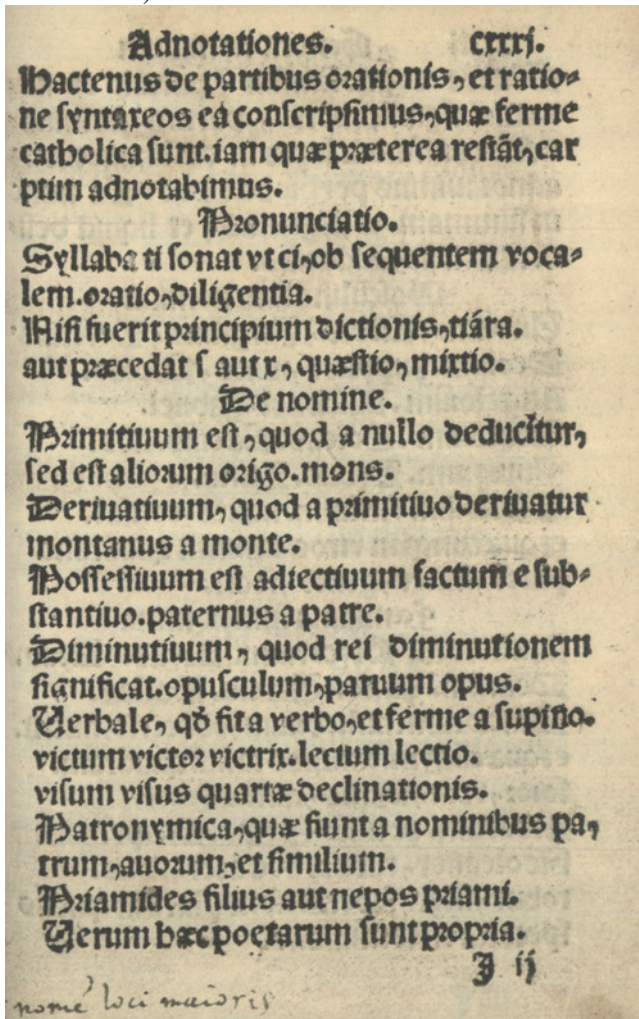 Adnotationes. cxxxj.
Hactenus de partibus orationis, et ratio-
ne syntaxeos ea conscripsimus, quæ ferme
catholica sunt. iam quæ præterea restãt, car
ptim adnotabimus.
Pronunciatio.
Syllaba ti sonat vt ci, ob sequentem voca-
lem. oratio, diligentia.
Nisi fuerit principium dictionis, tiãra.
aut præcedat s aut x, quæstio, mixtio.
De nomine.
Primitiuum est, quod a nullo deducitur,
sed est aliorum origo. mons.
Deriuatiuum, quod a primitiuo deriuatur
montanus a monte.
Possessiuum est adiectiuum factum e sub-
stantiuo. paternus a patre.
Diminutiuum, quod rei diminutionem
significat. opusculum, paruum opus.
Uerbale, qđ fit a verbo, et ferme a supino.
victum victor victrix. lectum lectio.
visum visus quartæ declinationis.
Patronymica, quæ fiunt a nominibus pa,
trum, auorum, et similium.
Priamides filius aut nepos priami.
Uerum hæc poetarum sunt propria.
J ij
nomē loci maioris